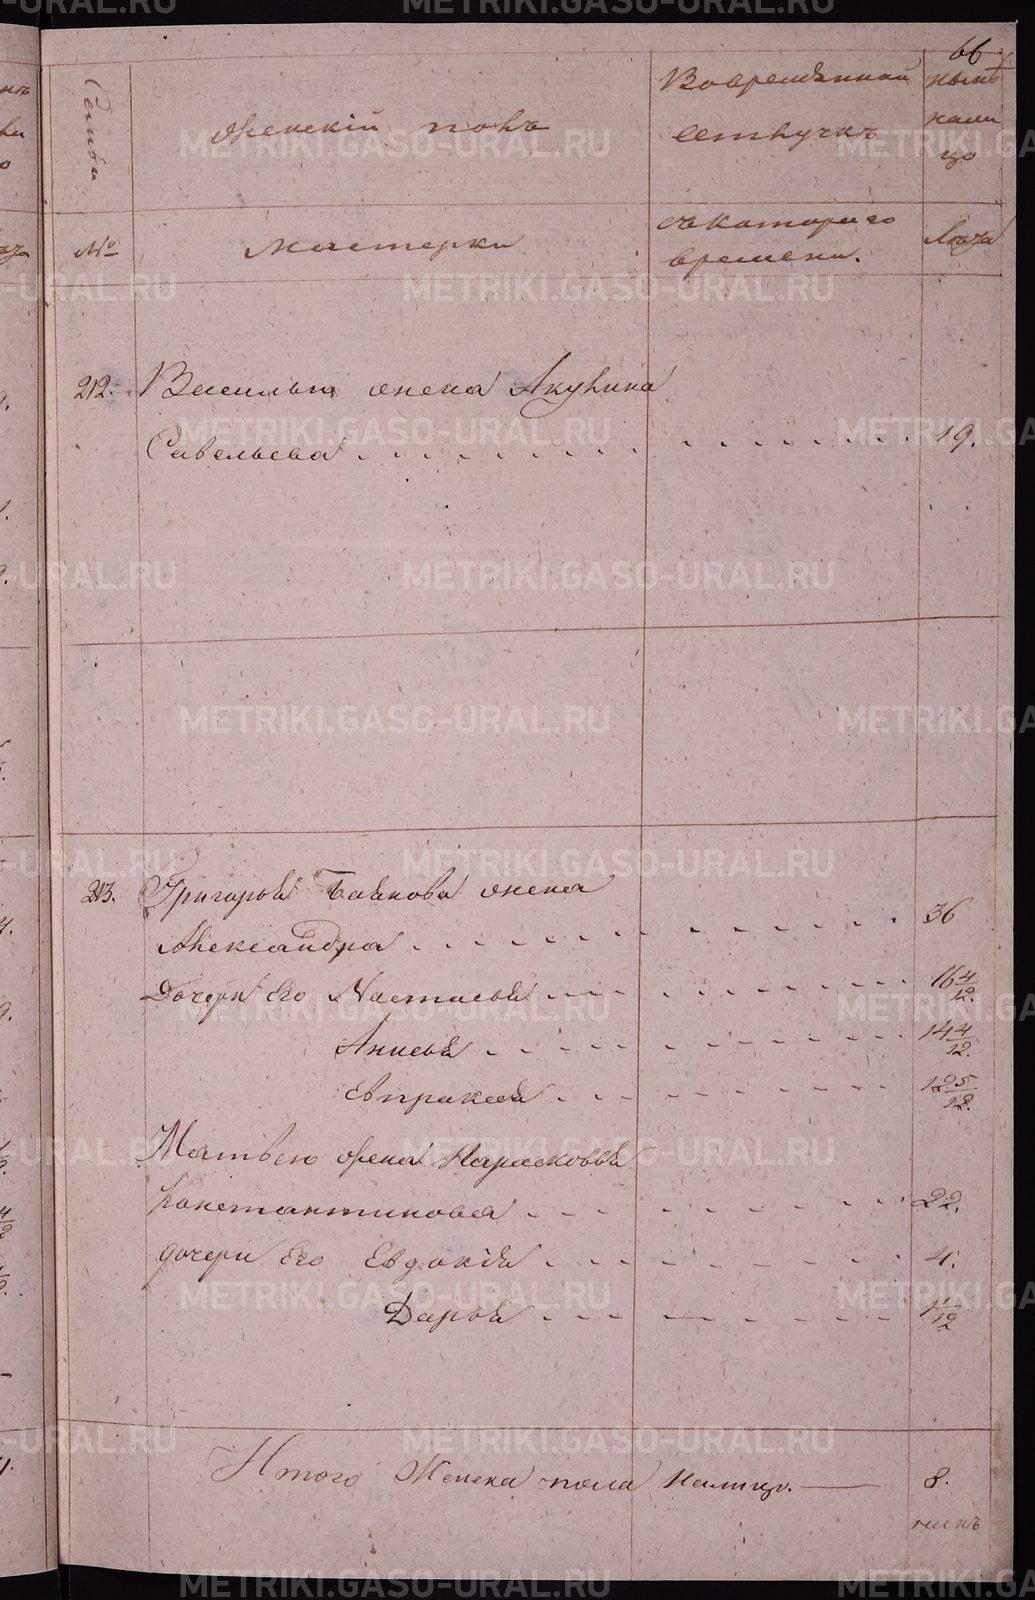 66
Семьи
Женскій полъ
Во временной
отлучкѣ
нынѣ
нали
цо
№
мастерки
съ котораго
времени.
Лѣта
212. Василья жена Акулина
Савельева 19.
213. Григорья Баянова жена
Александра 36
Дочери Его Настасья 16 4/12.
Анисья 14 4/12.
Евпраксея 12 5/12.
Матвею жена Парасковья
Константинова 22.
дочери Его Евдокія 4.
Дарья 1 1/12
Итого Женска пола налицо. 8.
METRIKI.GASO-URAL.RU